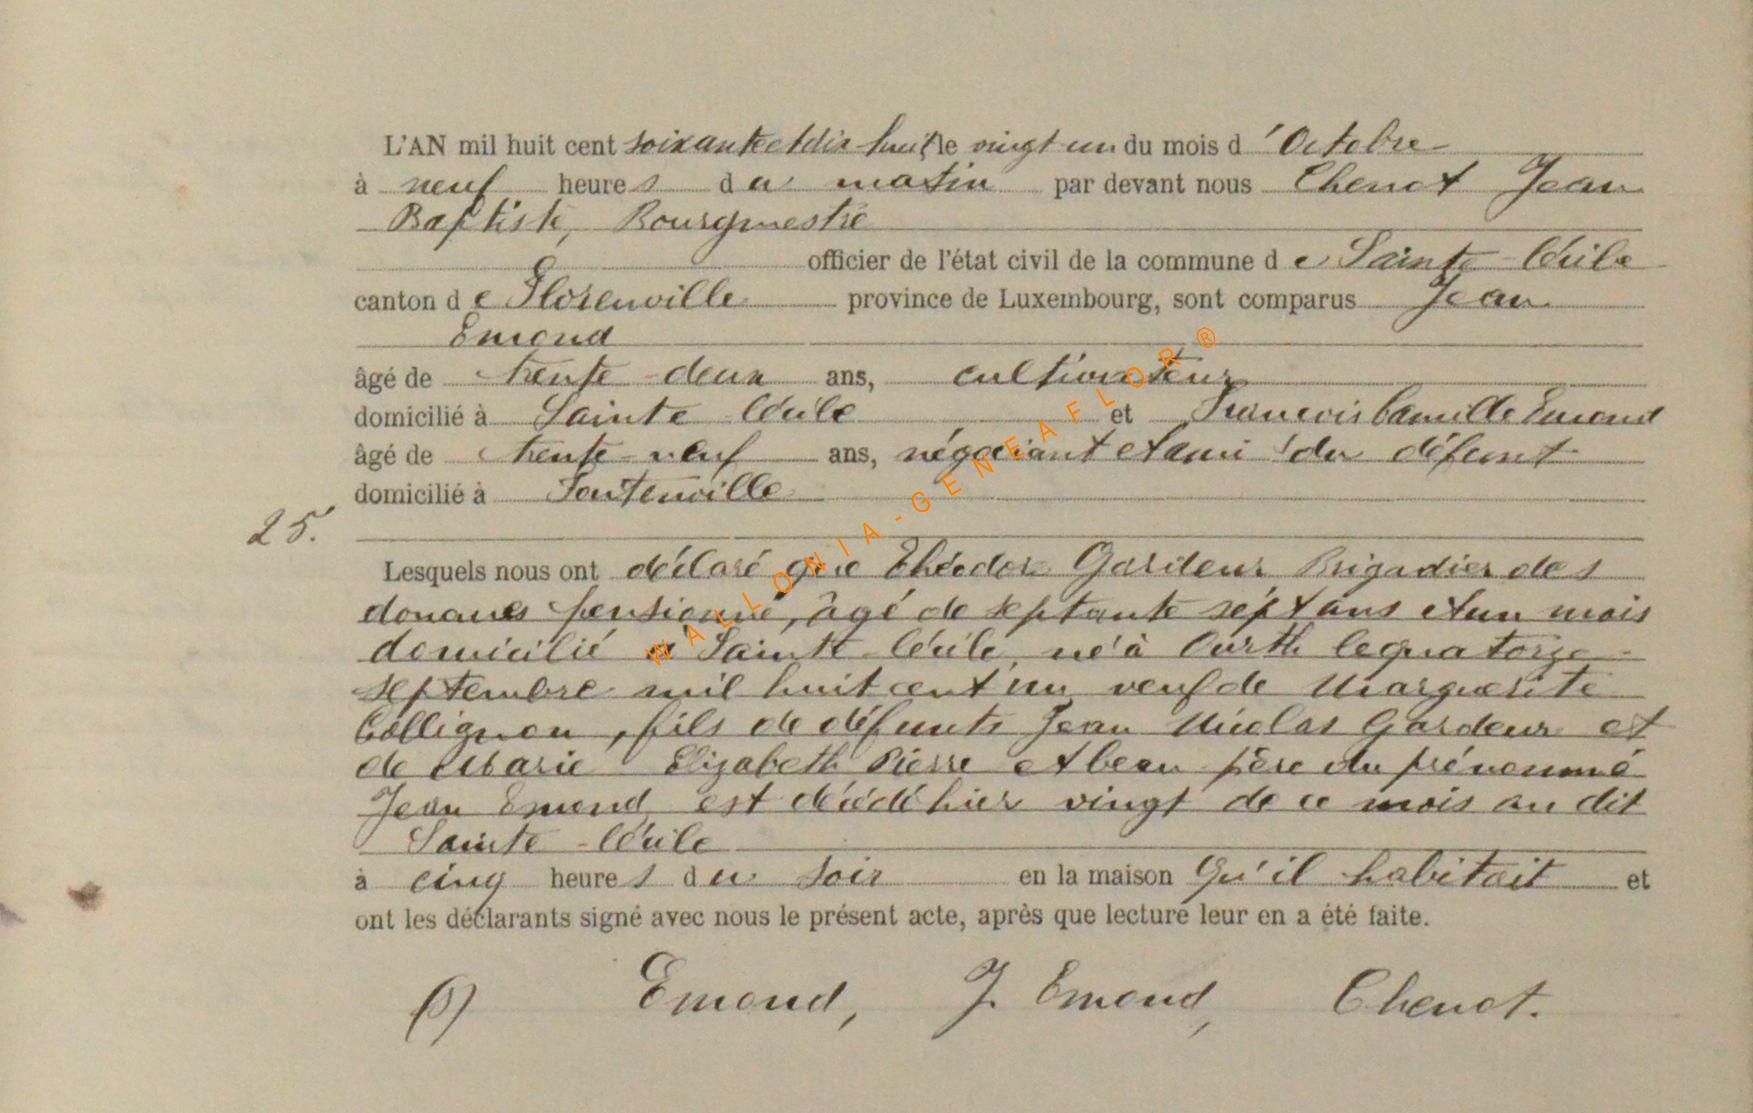 L'AN mil huit cent soixante et dix huit le vingt un du mois d'Octobre
à neuf heures du matin par devant nous Chenot Jean
Baptiste, Bourgmestre
officier de l'état civil de la commune de Sainte Cécile
canton de Florenville province de Luxembourg, sont comparus Jean
Emond
âgé de trente deux ans, cultivateur
domicilié à Sainte Cécile et François Camille Emond
âgé de trente-neuf ans, négociant et ami du défunt
domicilié à Fontenoille
25.
Lesquels nous ont déclaré que Théodore Gardeur Brigadier des
douanes pensionné, âgé de septante sept ans et un mois
domicilié à Sainte Cécile, né à Ourth le quatorze
septembre mil huit cent un veuf de Marguerite
Collignon, fils de défunts Jean Nicolas Gardeur et
de Marie Elizabeth Pierre et beau père du prénommé
Jean Emond, est décédé hier vingt de ce mois au dit
Sainte-Cécile
à cinq heures du soir en la maison qu'il habitait et
ont les déclarants signé avec nous le présent acte, après que lecture leur en a été faite.
(s) Emond, J. Emond, Chenot.
WALLONIA-GENEAFLOR®